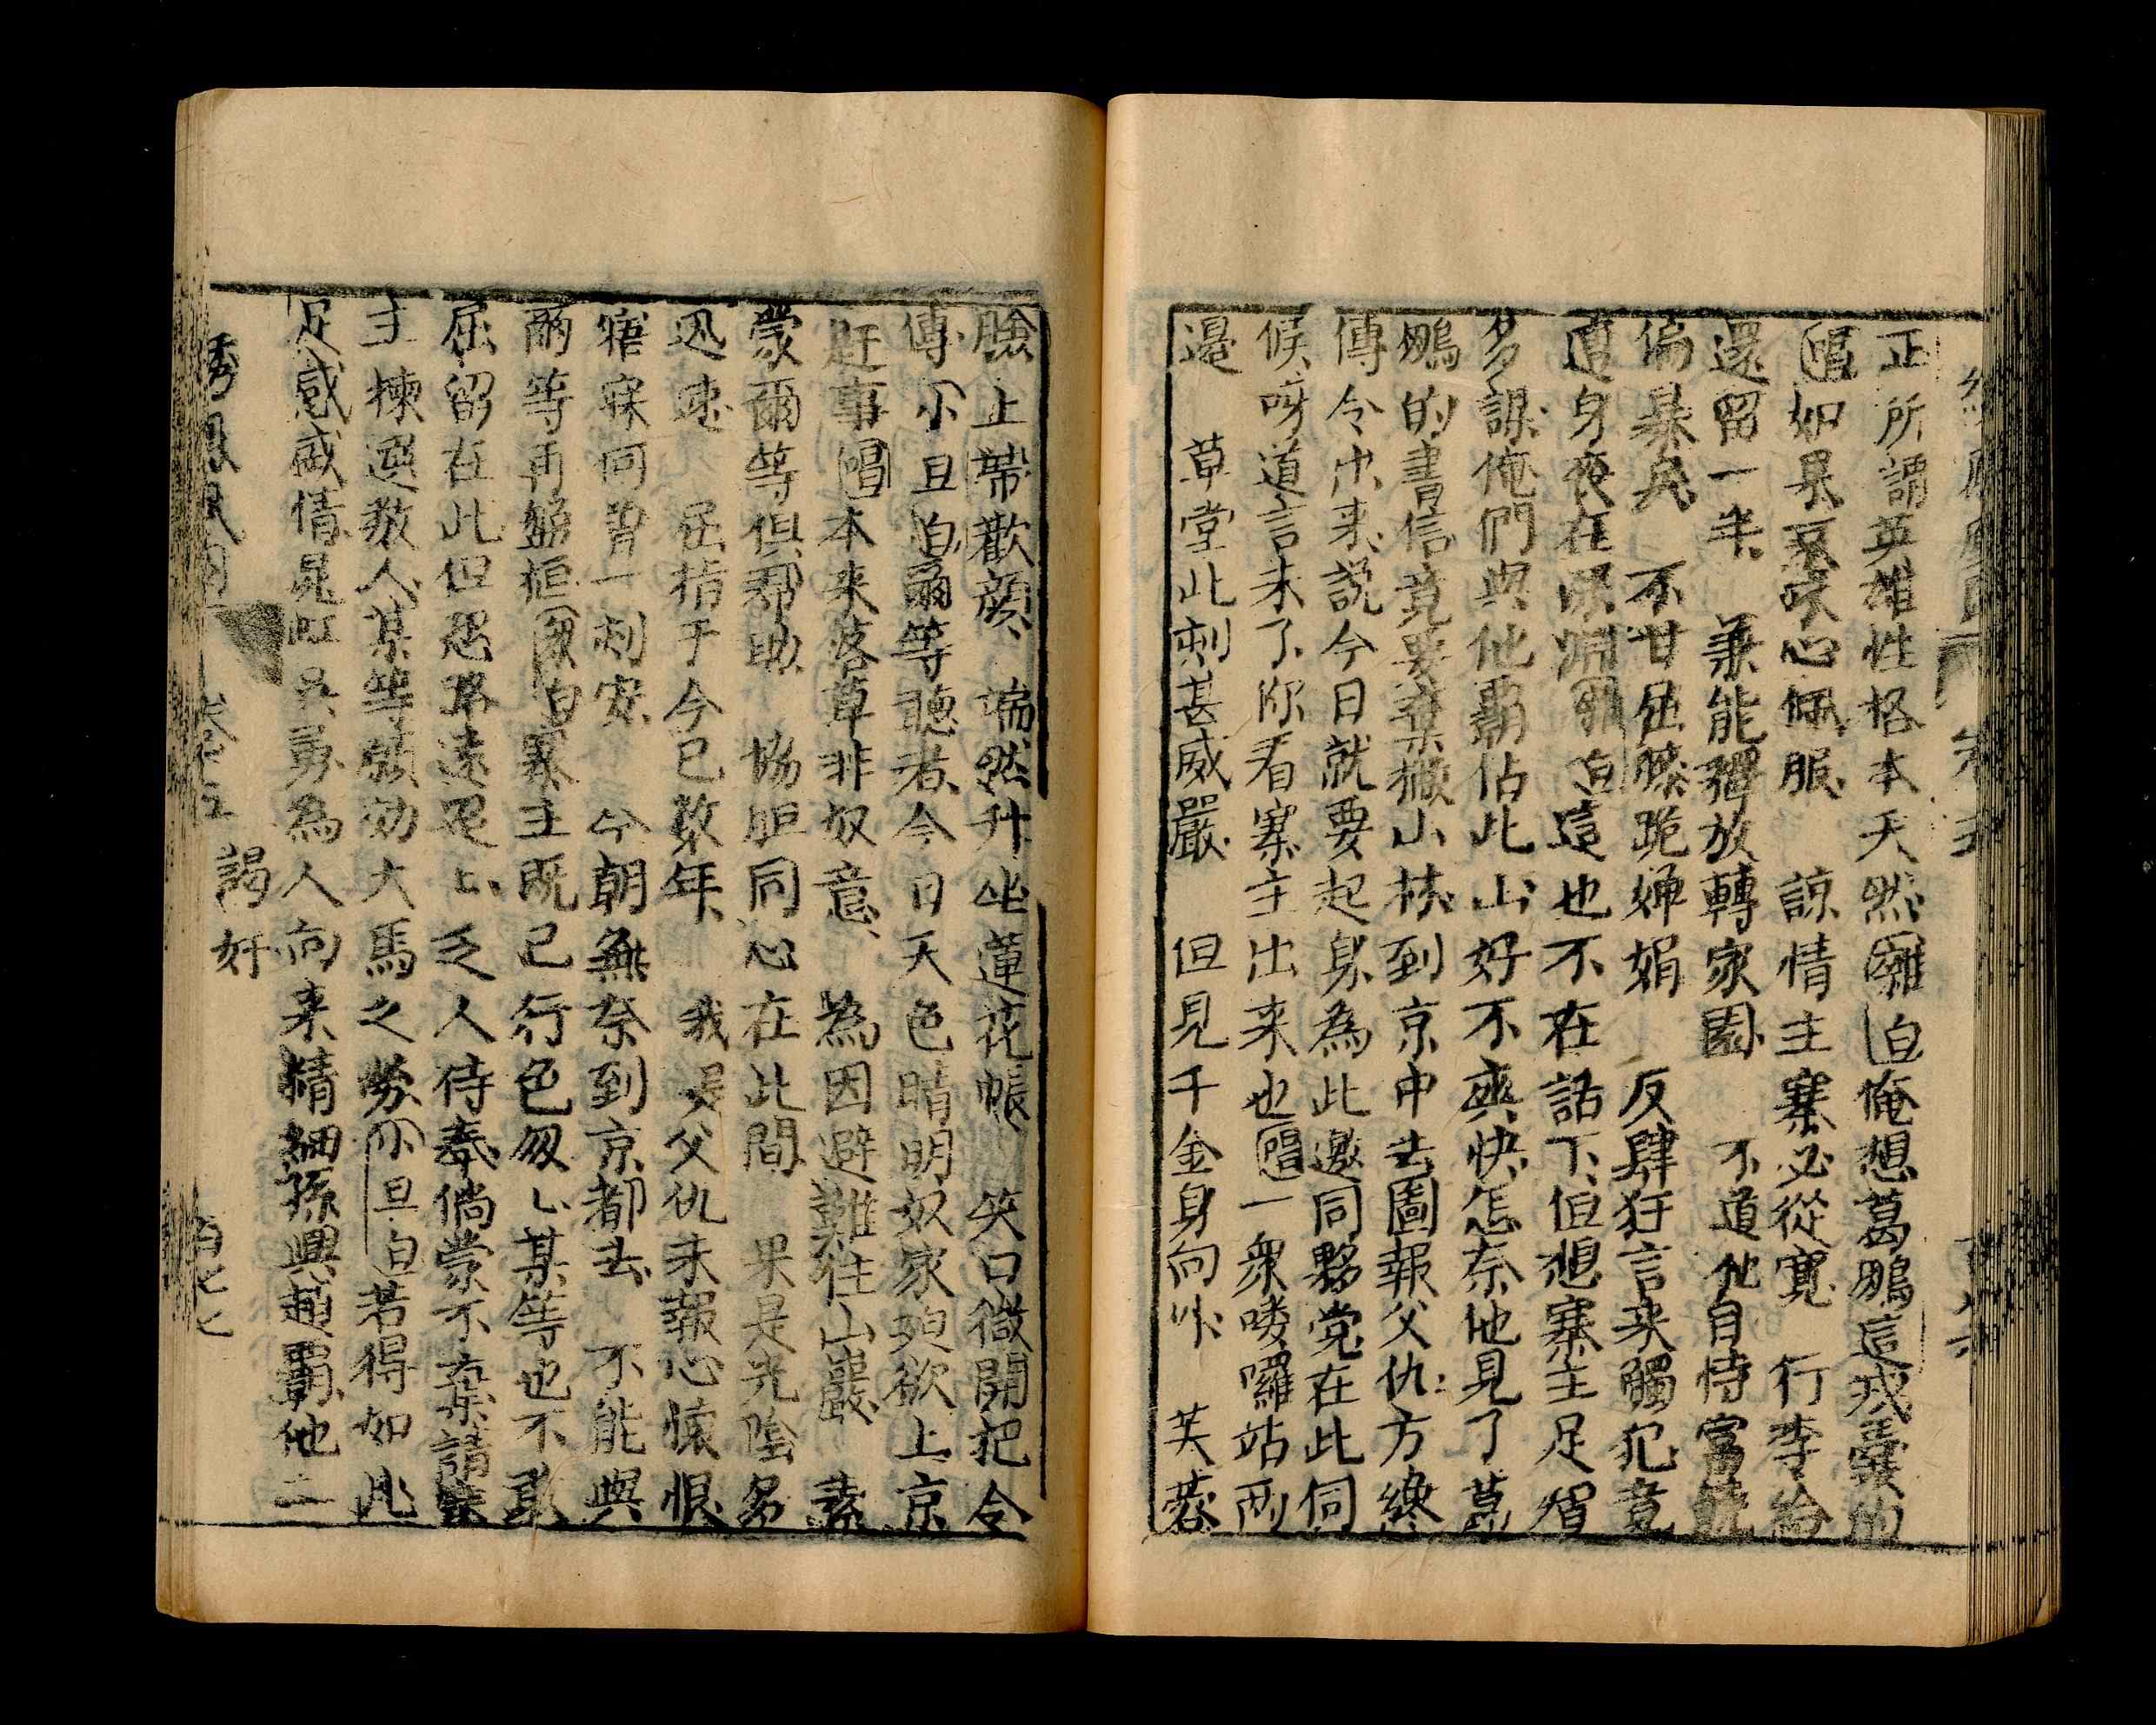 正所謂英雄性格本天然囃白俺想葛鵰這戎囊的
唱如果哀求心佩服 諒情主寨必從寬 行李給
還留一半 兼能釋放轉家園 不道他自恃官
偏暴兵 不甘屈膝跪婢娟 反肆狂言來觸犯竟
遭身夜在深淵囃白這也不在話下但想寨主足智
多謀俺們與他覇佔此山好不爽快怎奈他見了葛
鵰的書信竟要棄撇山林到京中去圖報父仇方纔
傳令出来説今日就要起身為此邀同夥党在此伺
候呀道言未了你看寨主出来也唱一衆嘍囉站兩
邊 草堂此刻甚威嚴 但見千金身向外 芙蓉
臉上帶歡顔 端然升坐蓮花帳 笑口微開把令
傳小旦白爾等聽者今日天色晴明奴家廹欲上京
赶事唱本来落草非奴意 為因避難往山巖 素
蒙爾等但帮助 協胆同心在此間 果是光陰多
迅速 屈指于今已數年 我是父仇未報心懷恨
寤寐何曽一刻安 今朝無奈到京都去 不能與
爾等再盤桓衆白寨主既已行色匆匕某等也不敢
屈留在此但恐路途迢匕乏人侍奉倘蒙不棄請寨
主揀選敎人某等願効犬馬之勞小旦白若得如此
足感威情晁虹吳勇為人向来精細孫興趙覇他二
卷十五 謁奸 百七七